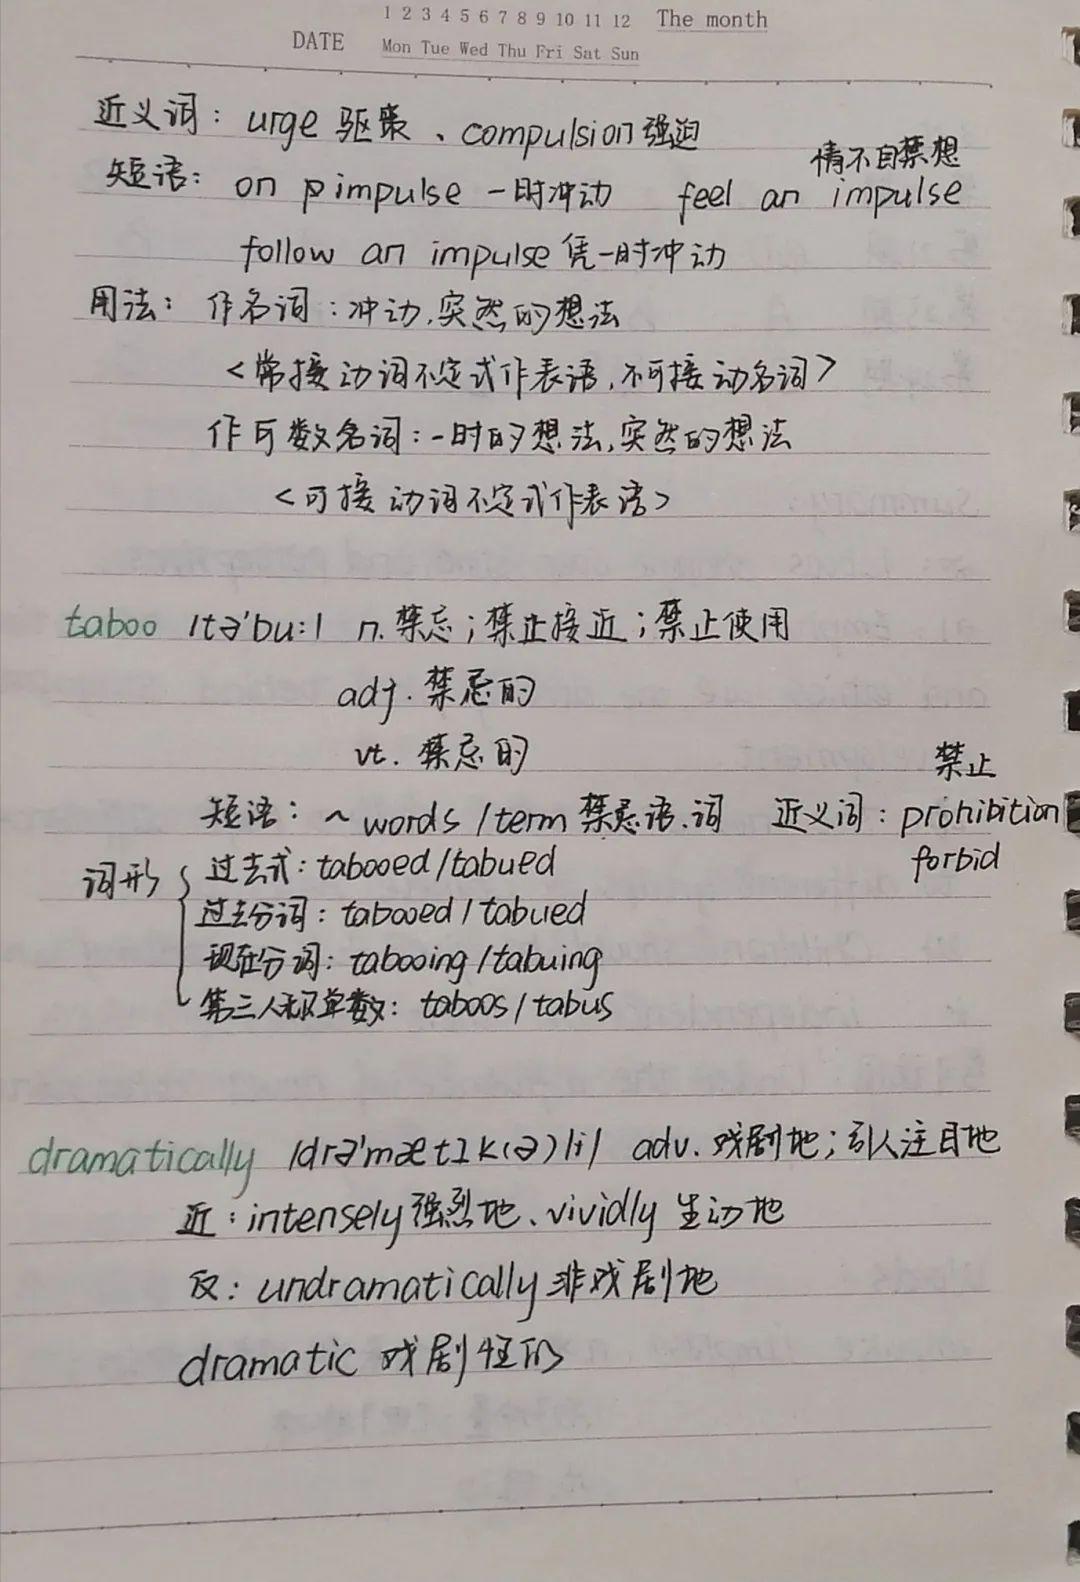 1 2 3 4 5 6 7 8 9 10 11 12 The month
DATE Mon Tue Wed Thu Fri Sat Sun
近义词：urge 驱策、compulsion 强迫
情不自禁想
短语：on impulse 一时冲动 feel an impulse
follow an impulse 凭一时冲动
用法：作名词：冲动,突然的想法
<常接动词不定式作表语,不可接动名词>
作可数名词：一时的想法,突然的想法
<可接动词不定式作表语>
taboo /tə'bu:/ n.禁忌；禁止接近；禁止使用
adj.禁忌的
vt.禁忌的
禁止
短语：~words/term 禁忌语、词 近义词：prohibition
forbid
词形 { 过去式：tabooed/tabued
过去分词：tabooed/tabued
现在分词：tabooing/tabuing
第三人称单数：taboos/tabus
dramatically /drə'mætɪk(ə)li/ adv.戏剧地；引人注目地
近：intensely 强烈地、vividly 生动地
反：undramatically 非戏剧地
dramatic 戏剧性的